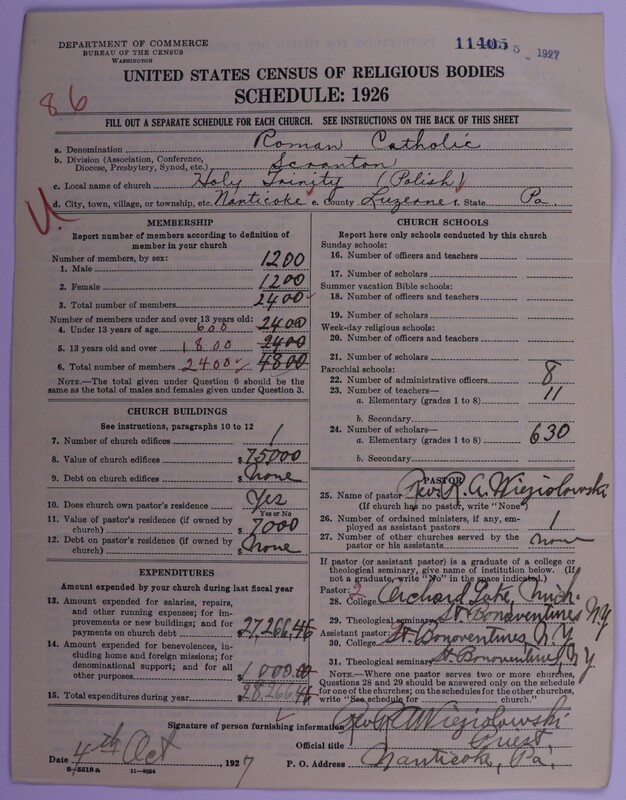 DEPARTMENT OF COMMERCE
BUREAU OF THE CENSUS
WASHINGTON
11405 5 1927
UNITED STATES CENSUS OF RELIGIOUS BODIES
SCHEDULE: 1926
86
FILL OUT A SEPARATE SCHEDULE FOR EACH CHURCH. SEE INSTRUCTIONS ON THE BACK OF THIS SHEET
a. Denomination Roman Catholic
b. Division (Association, Conference, Diocese, Presbytery, Synod, etc.) Scranton
c. Local name of church Holy Trinity (Polish)
d. City, town, village, or township, etc. Nanticoke e. County Luzerne f. State Pa.
U.
MEMBERSHIP
Report number of members according to definition of
member in your church
Number of members, by sex:
1. Male 1200
2. Female 1200
3. Total number of members 2400
Number of members under and over 13 years old:
4. Under 13 years of age 600 2400
5. 13 years old and over 1800 2400
6. Total number of members 2400 4800
NOTE.—The total given under Question 6 should be the
same as the total of males and females given under Question 3.
CHURCH BUILDINGS
See instructions, paragraphs 10 to 12
7. Number of church edifices 1
8. Value of church edifices $75000
9. Debt on church edifices $None
10. Does church own pastor's residence? Yes
Yes or No
11. Value of pastor's residence (if owned by
church) $7000
12. Debt on pastor's residence (if owned by
church) $None
EXPENDITURES
Amount expended by your church during last fiscal year
13. Amount expended for salaries, repairs,
and other running expenses; for im-
provements or new buildings; and for
payments on church debt $27,266,46
14. Amount expended for benevolences, in-
cluding home and foreign missions; for
denominational support; and for all
other purposes $1000.00
15. Total expenditures during year $28,266 46
CHURCH SCHOOLS
Report here only schools conducted by this church
Sunday schools:
16. Number of officers and teachers
17. Number of scholars
Summer vacation Bible schools:
18. Number of officers and teachers
19. Number of scholars
Week-day religious schools:
20. Number of officers and teachers
21. Number of scholars
Parochial schools:
22. Number of administrative officers 8
23. Number of teachers—
a. Elementary (grades 1 to 8) 11
b. Secondary
24. Number of scholars—
a. Elementary (grades 1 to 8) 630
b. Secondary
PASTOR
25. Name of pastor Rev. R. A. Wieziolowski
(If church has no pastor, write "None")
26. Number of ordained ministers, if any, em-
ployed as assistant pastors 1
27. Number of other churches served by the
pastor or his assistants none
If pastor (or assistant pastor) is a graduate of a college or
theological seminary, give name of institution below. (If
not a graduate, write "No" in the space indicated.)
Pastor: 2
28. College Orchard Lake, Mich.
29. Theological seminary St. Bonaventures N.Y
Assistant pastor:
30. College St. Bonaventures N.Y.
31. Theological seminary St. Bonaventures, N Y
NOTE.—Where one pastor serves two or more churches,
Questions 28 and 29 should be answered only on the schedule
for one of the churches; on the schedules for the other churches,
write "See schedule for church."
Signature of person furnishing information Rev. R. A. Wieziolowski
Official title Priest,
Date 4th Oct, 1927 P. O. Address Nanticoke, Pa.
8-5518a 11-9024